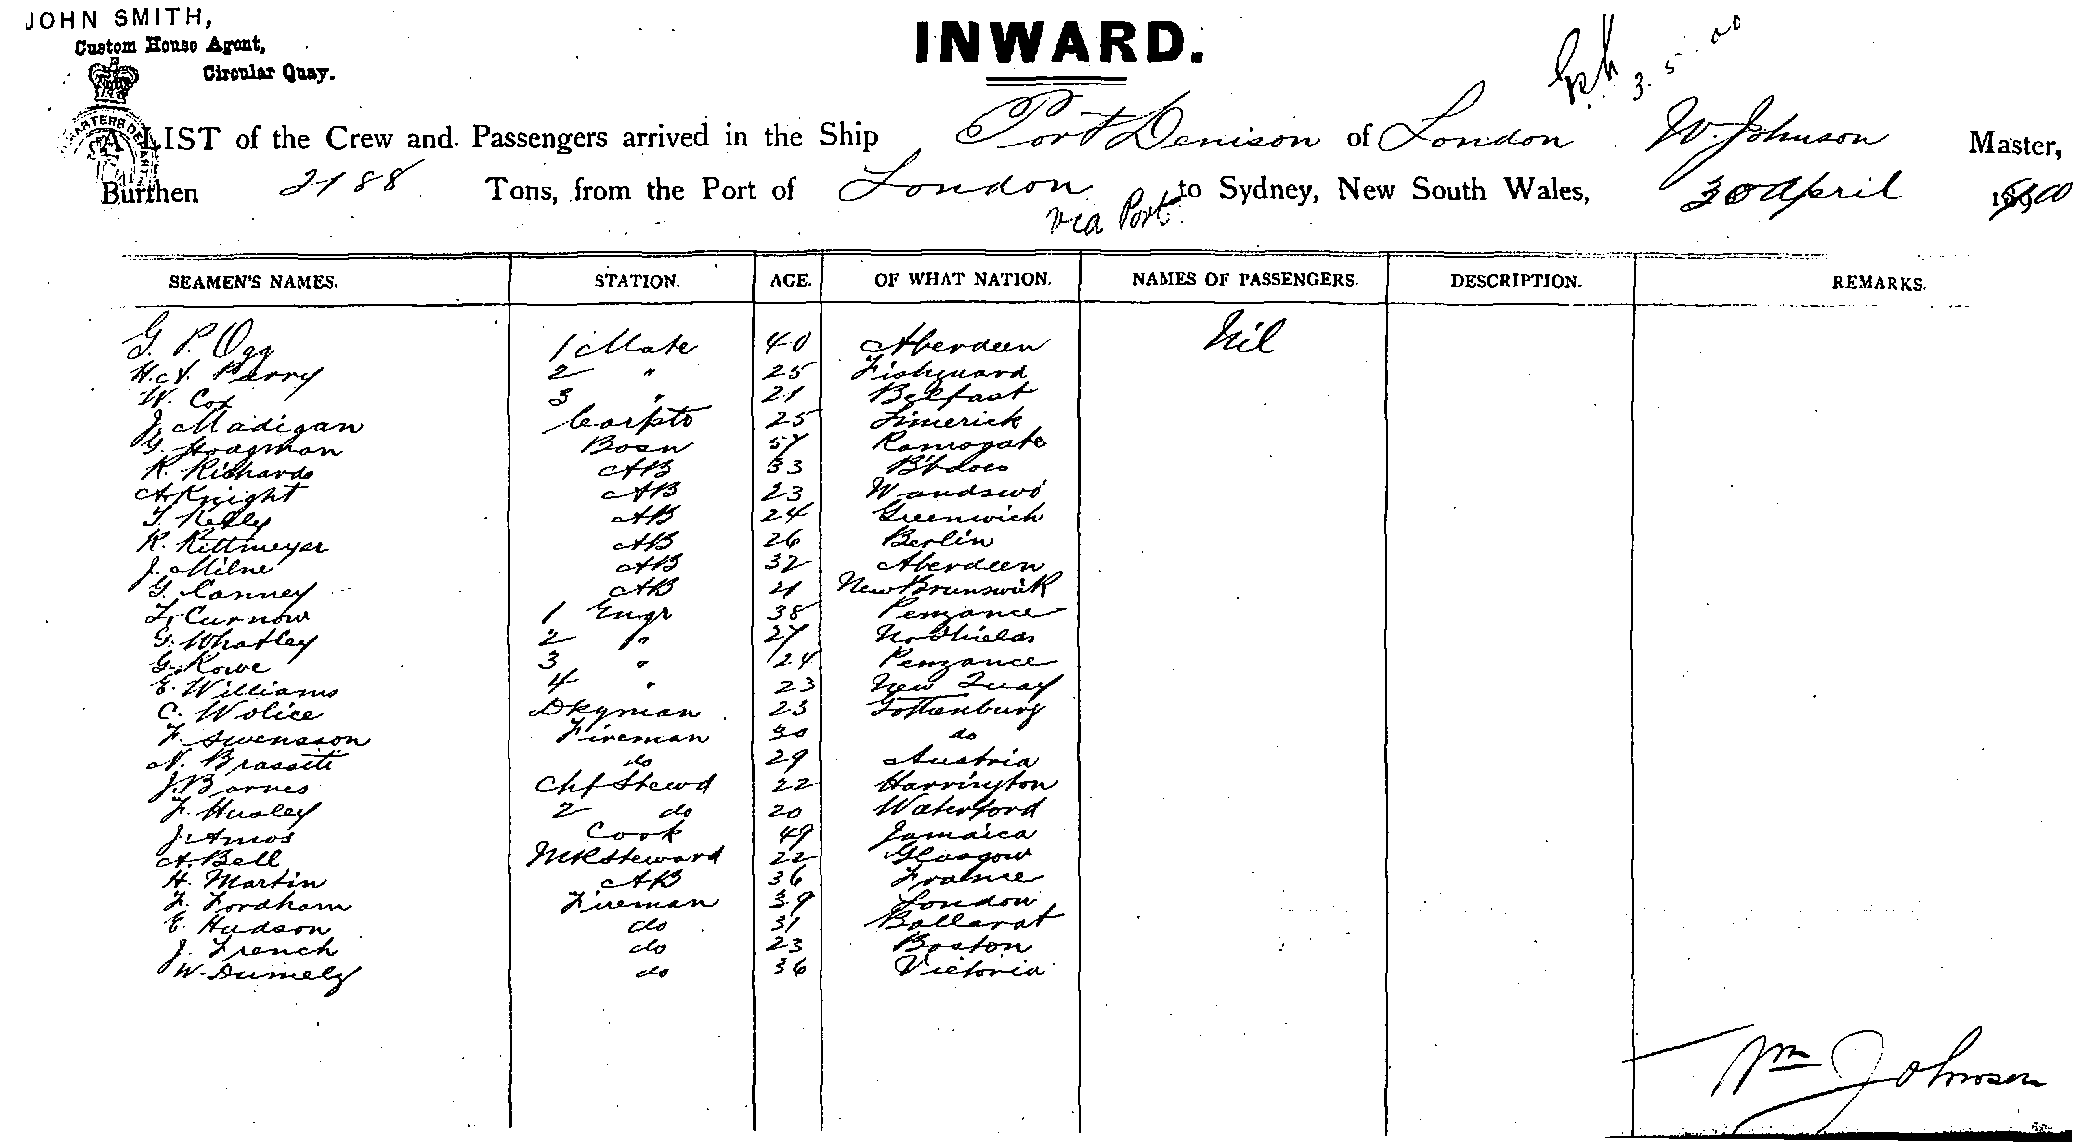 JOHN SMITH,
Custom House Agent,
Circular Quay.
INWARD.
3.5.00
A LIST of the Crew and Passengers arrived in the Ship Port Denison of London W. Johnson Master,
Burthen 2188 Tons, from the Port of London to Sydney, New South Wales, 30 April 1900
via Port
SEAMEN'S NAMES. STATION. AGE. OF WHAT NATION. NAMES OF PASSENGERS. DESCRIPTION. REMARKS.
G. P. Ogg 1 Mate 40 Aberdeen Nil
H. A. Perry 2 " 25 Fishguard
W. Cox 3 " 21 Belfast
J. Madigan Carptr 25 Limerick
G. Hodgman Bosn 57 Ramsgate
R. Richards AB 33 B'bdoes
A. Knight AB 23 Wandswo
T. Kelly AB 24 Greenwich
R. Rittmeyer AB 26 Berlin
J. Milne AB 32 Aberdeen
G. Canney AB 21 New Brunswick
T. Curnow 1 Engr 38 Penzance
G. Whatley 2 " 27 No Shields
G. Rowe 3 " 24 Penzance
E. Williams 4 " 23 New Quay
C. Wolice Dkyman 23 Gottenburg
F. Swensson Fireman 30 do
N. Brassiti do 29 Austria
J. Barnes Chf Stewd 22 Harrington
F. Husley 2 do 20 Waterford
J. Amos Cook 49 Jamaica
A. Bell MR Steward 22 Glasgow
H. Martin AB 36 France
F. Fordham Fireman 39 London
E. Hudson do 31 Ballarat
J. French do 23 Boston
W. Dumely do 36 Victoria
Wm Johnson